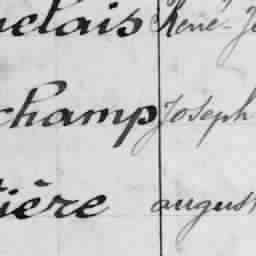 elais René-J
champ Joseph
ière august